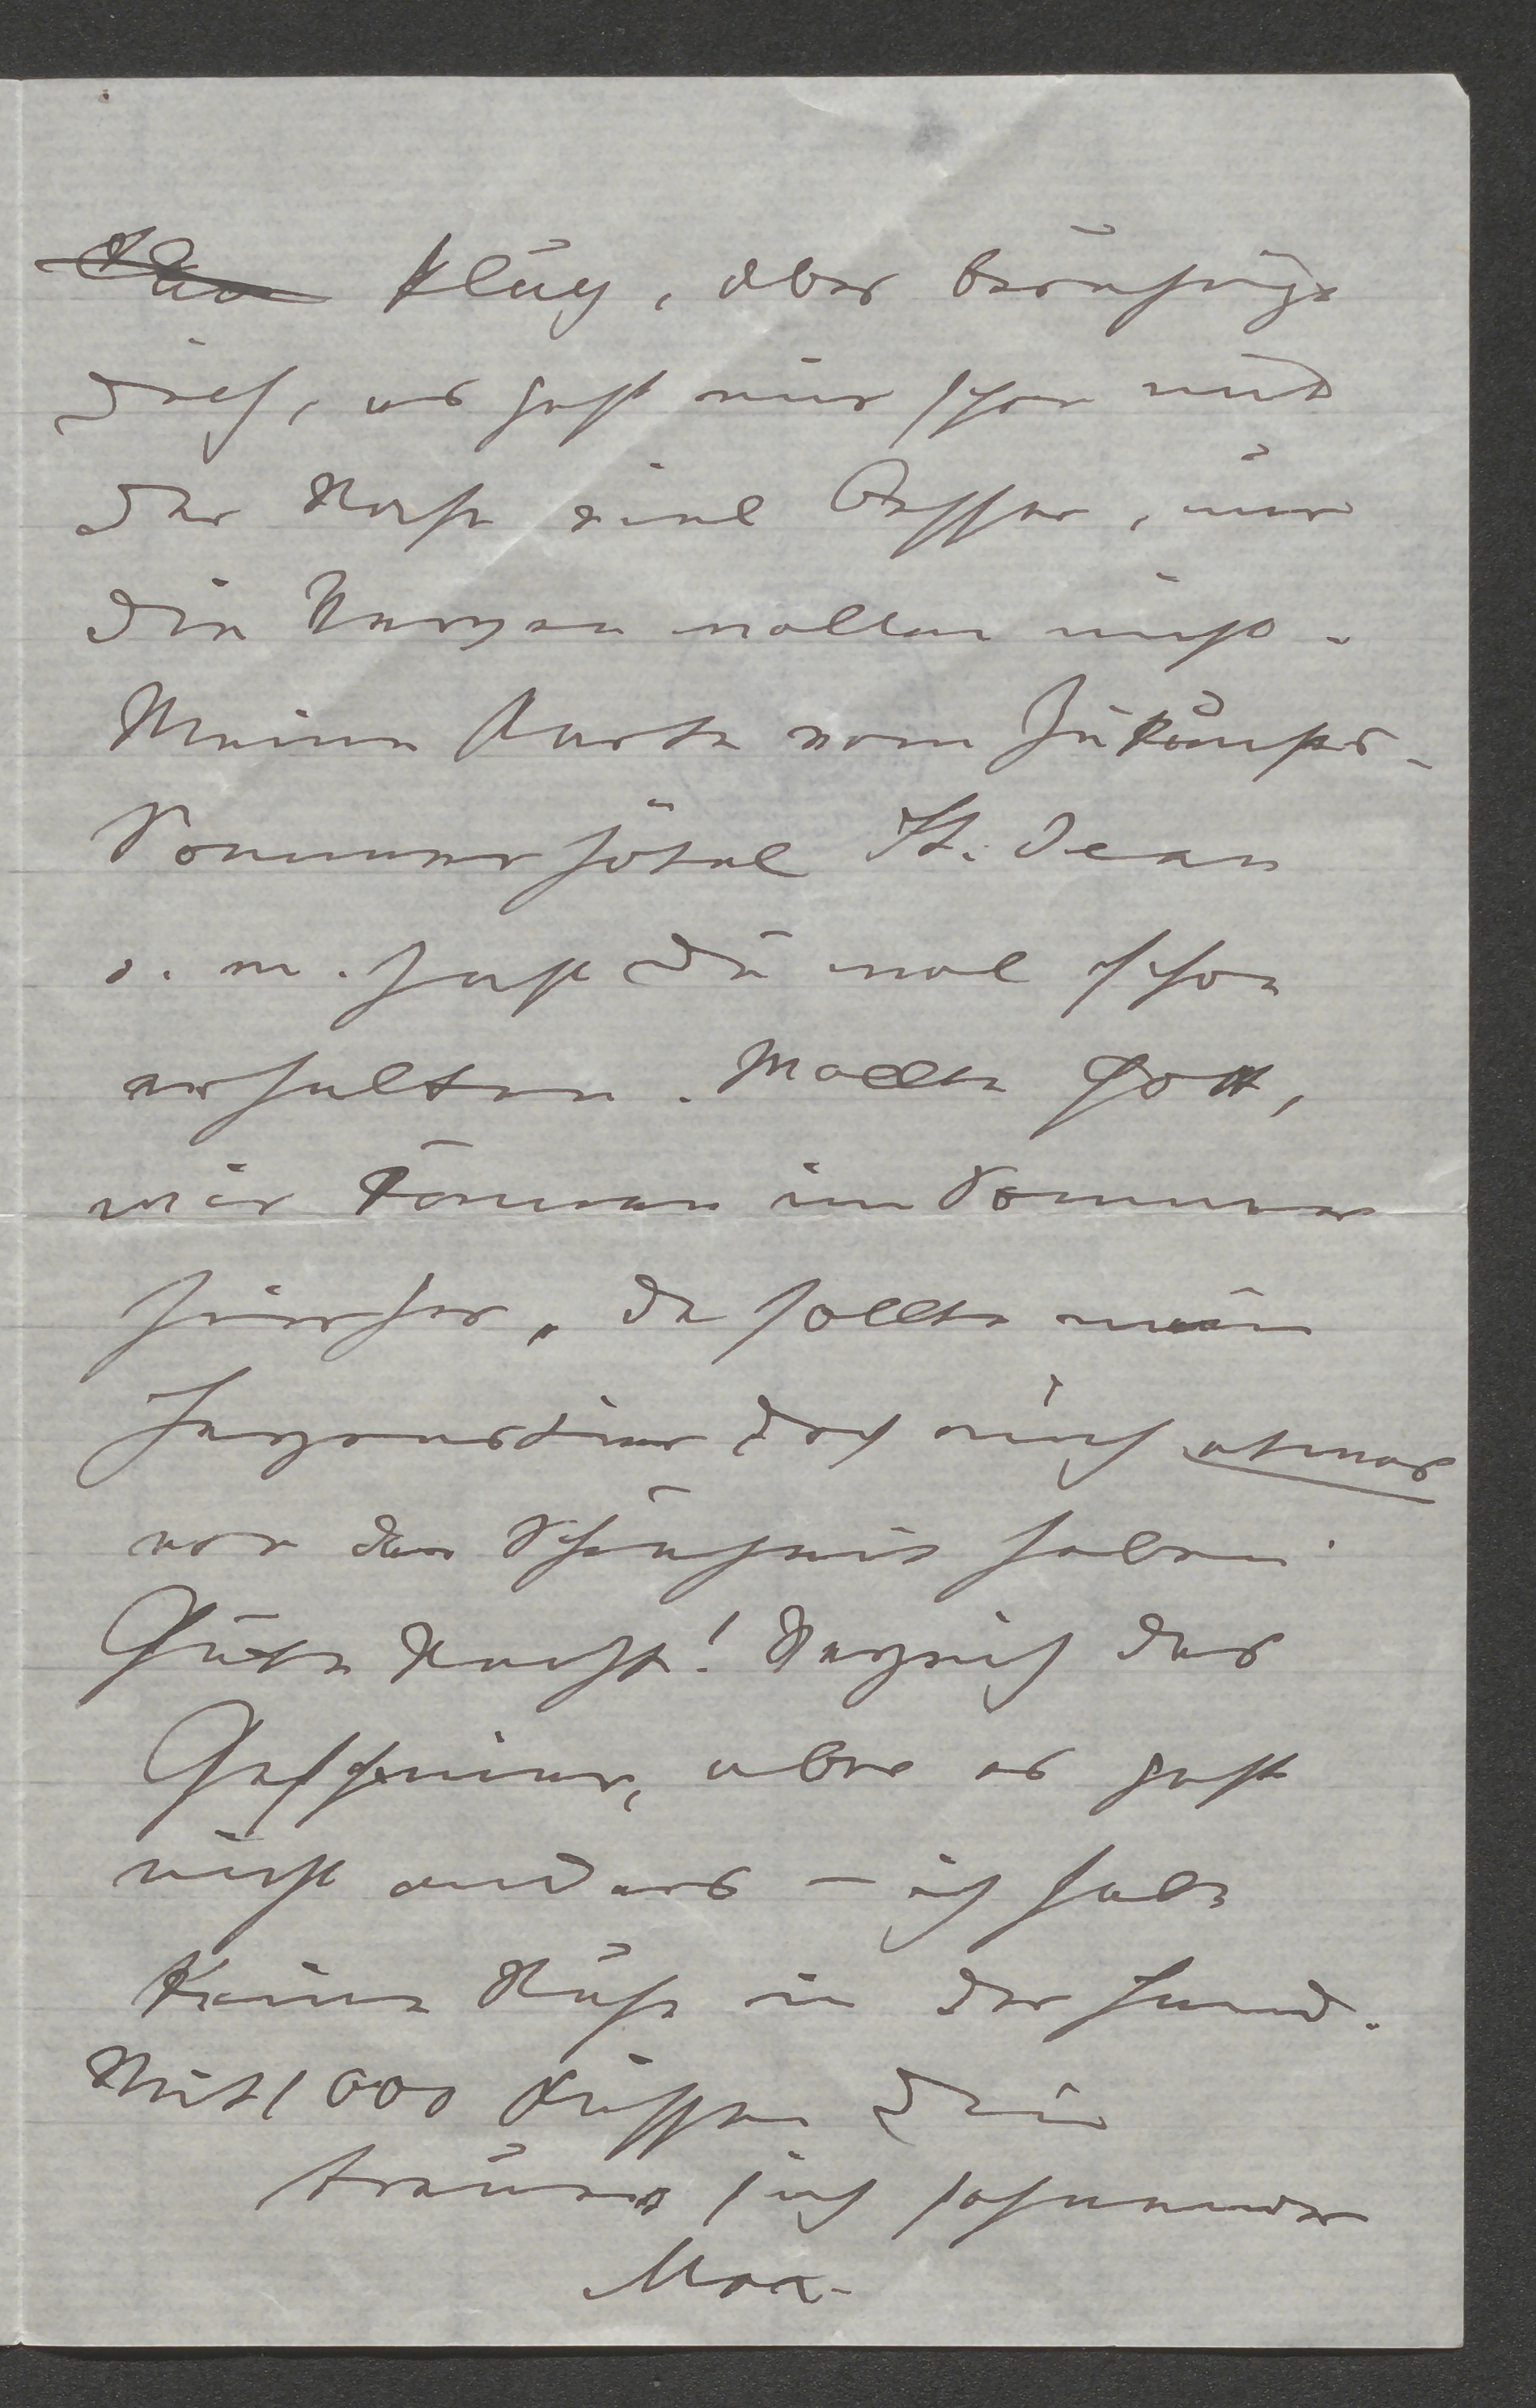 klug, aber beruhige
Dich, es geht mir schon mit
der Ruhe viel besser, nur
die Nerven wollen nicht.
Meine Karte vom Zukunfts-
Sommerhôtel St. Jean
d. m. hast Du wol schon
erhalten. Wollte Gott,
wir können im Sommer
hierher, da sollte mein
Herzenstier doch auch etwas
von der Schönheit haben.
Gute Nacht! Verzeih das
Geschmier, aber es geht
nicht anders – ich habe
keine Ruhe in der Hand.
Mit 1000 Küssen Dein
treuer sich sehnender
Max.